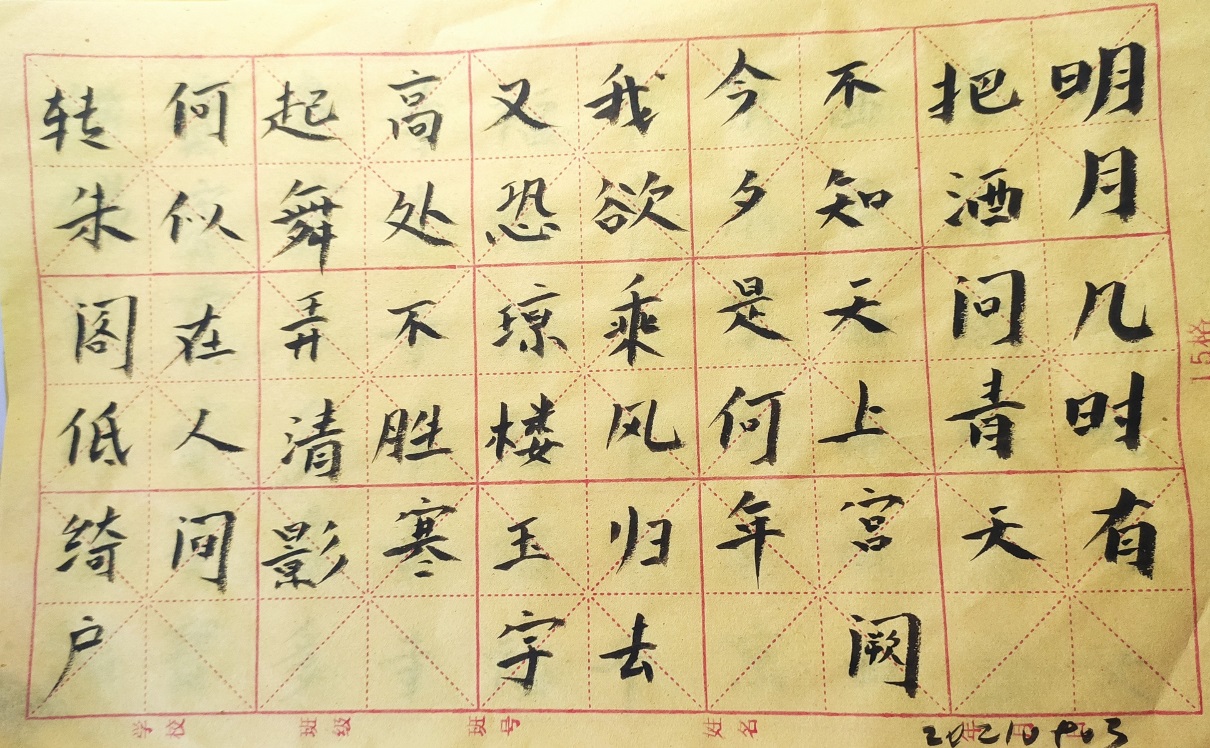 明月几时有
把酒问青天
不知天上宫阙
今夕是何年
我欲乘风归去
又恐琼楼玉宇
高处不胜寒
起舞弄清影
何似在人间
转朱阁低绮户
15格
学校
班级
班号
姓名